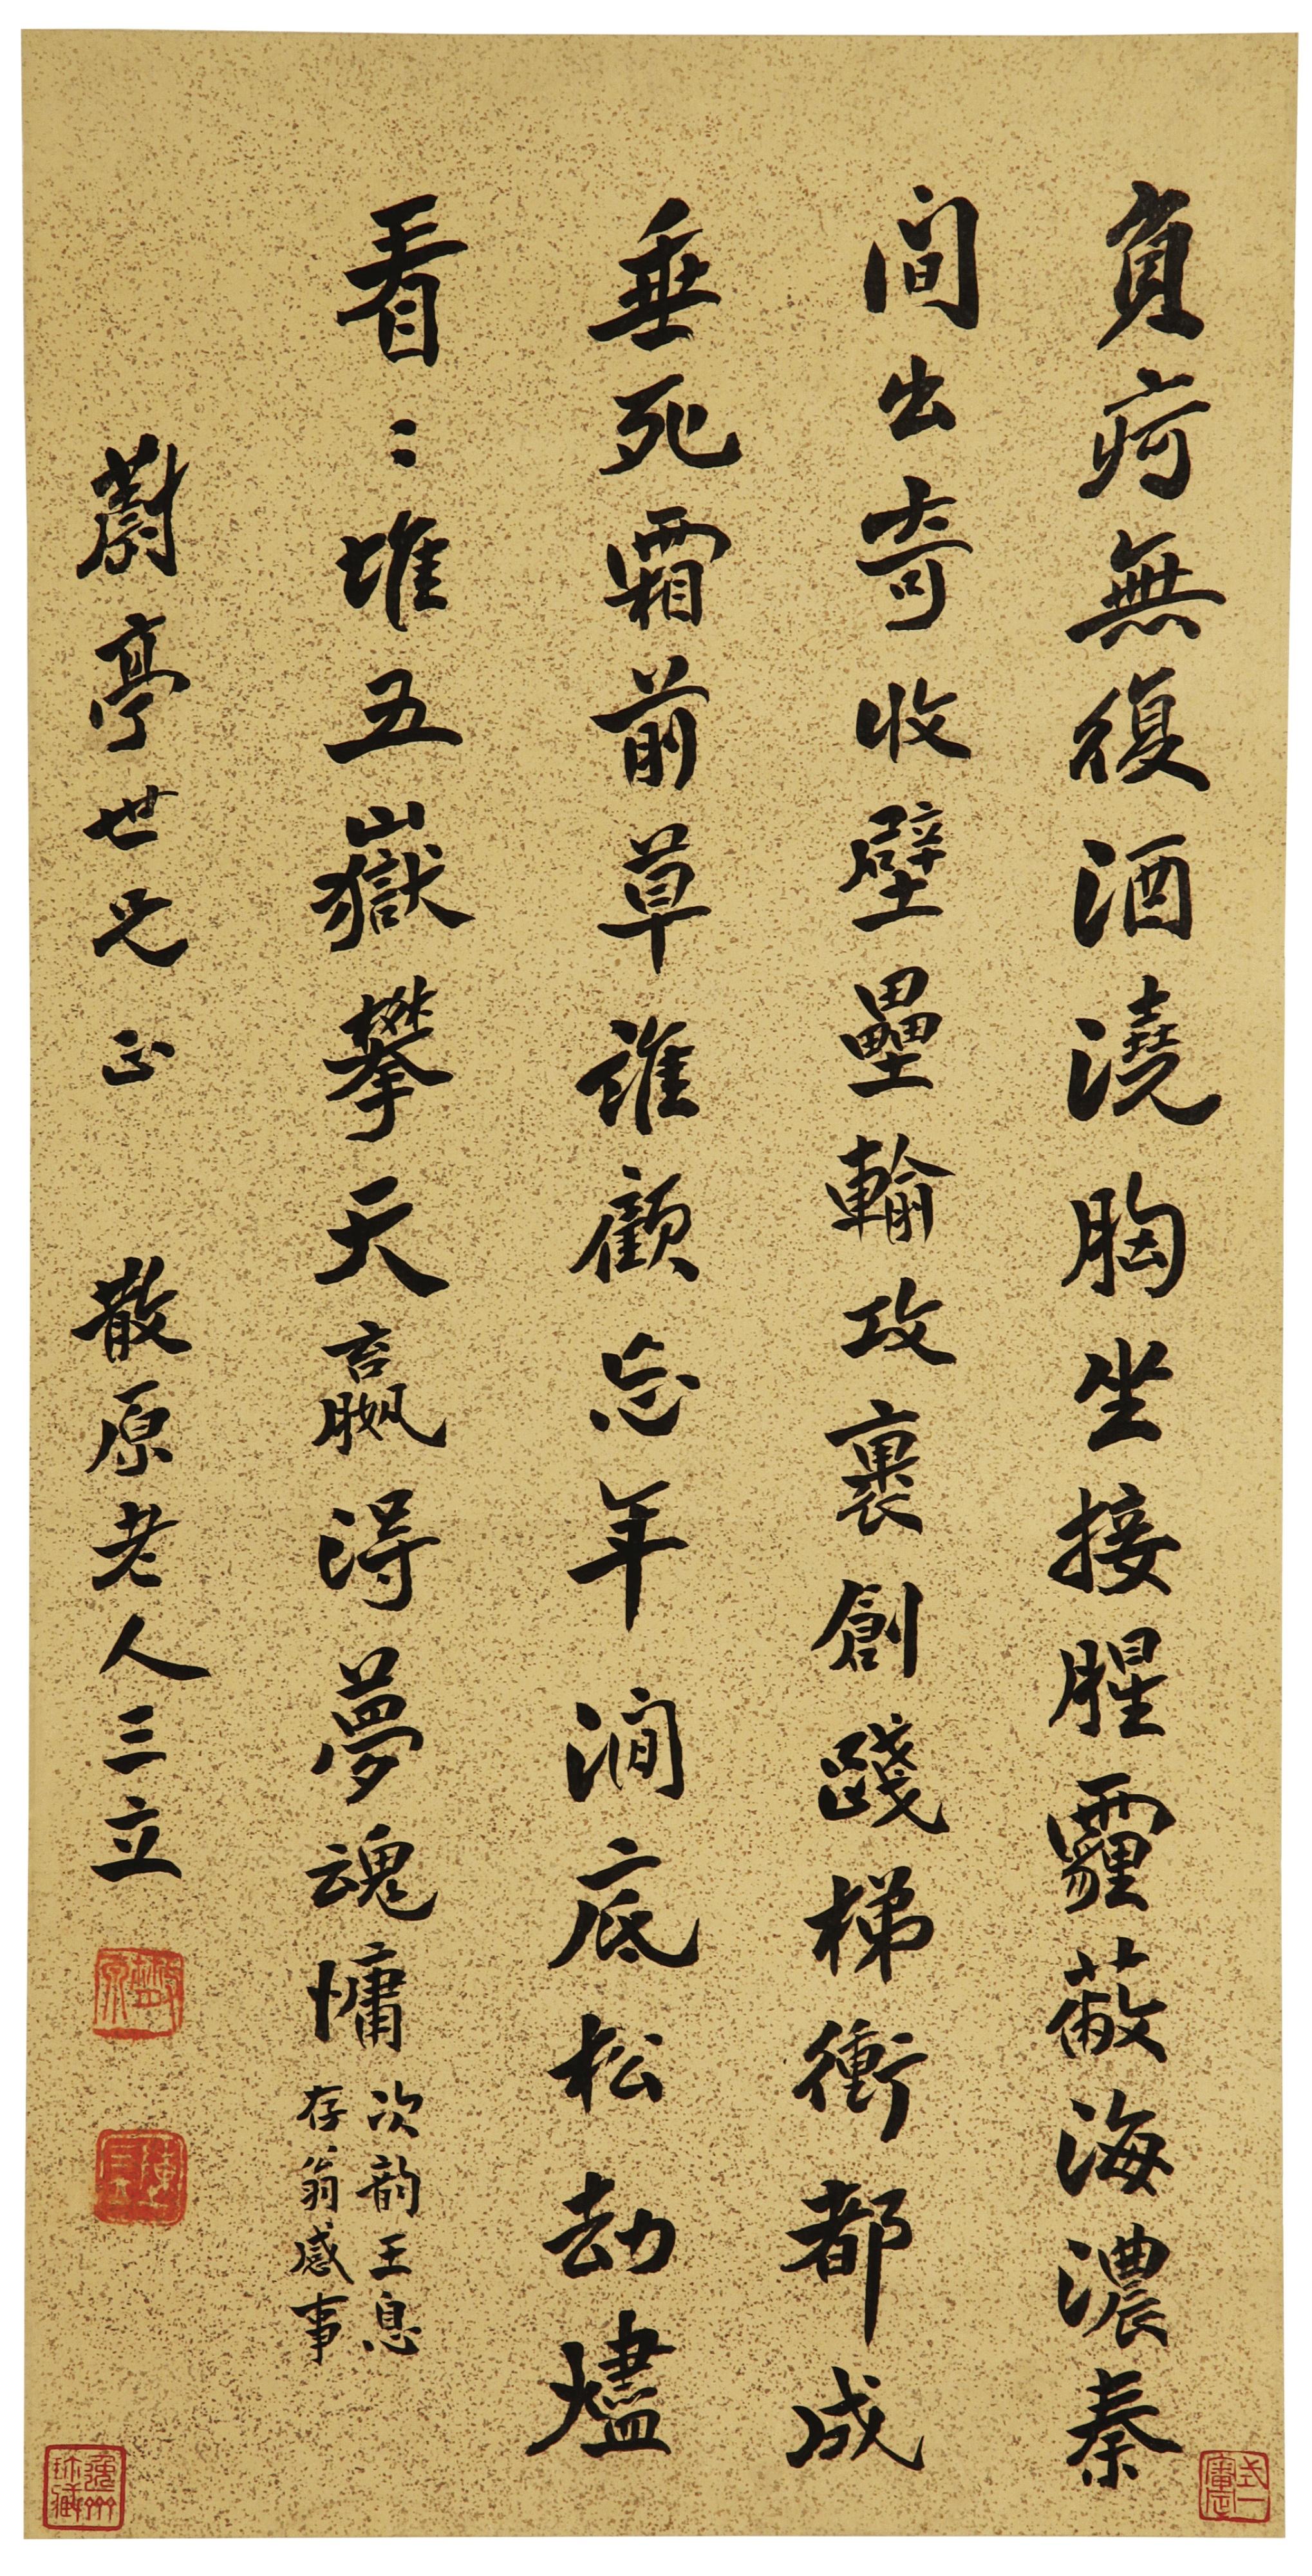 負痾無復酒澆胸坐接腥霾蔽海濃秦
間出奇收壁壘輸攻裹創踐梯衝都成
垂死霜前草誰顧忘年澗底松劫燼
看〻堆五嶽攀天贏得夢魂慵
次韵王息
存翁感事
蔚亭世兄正 散原老人三立
散原